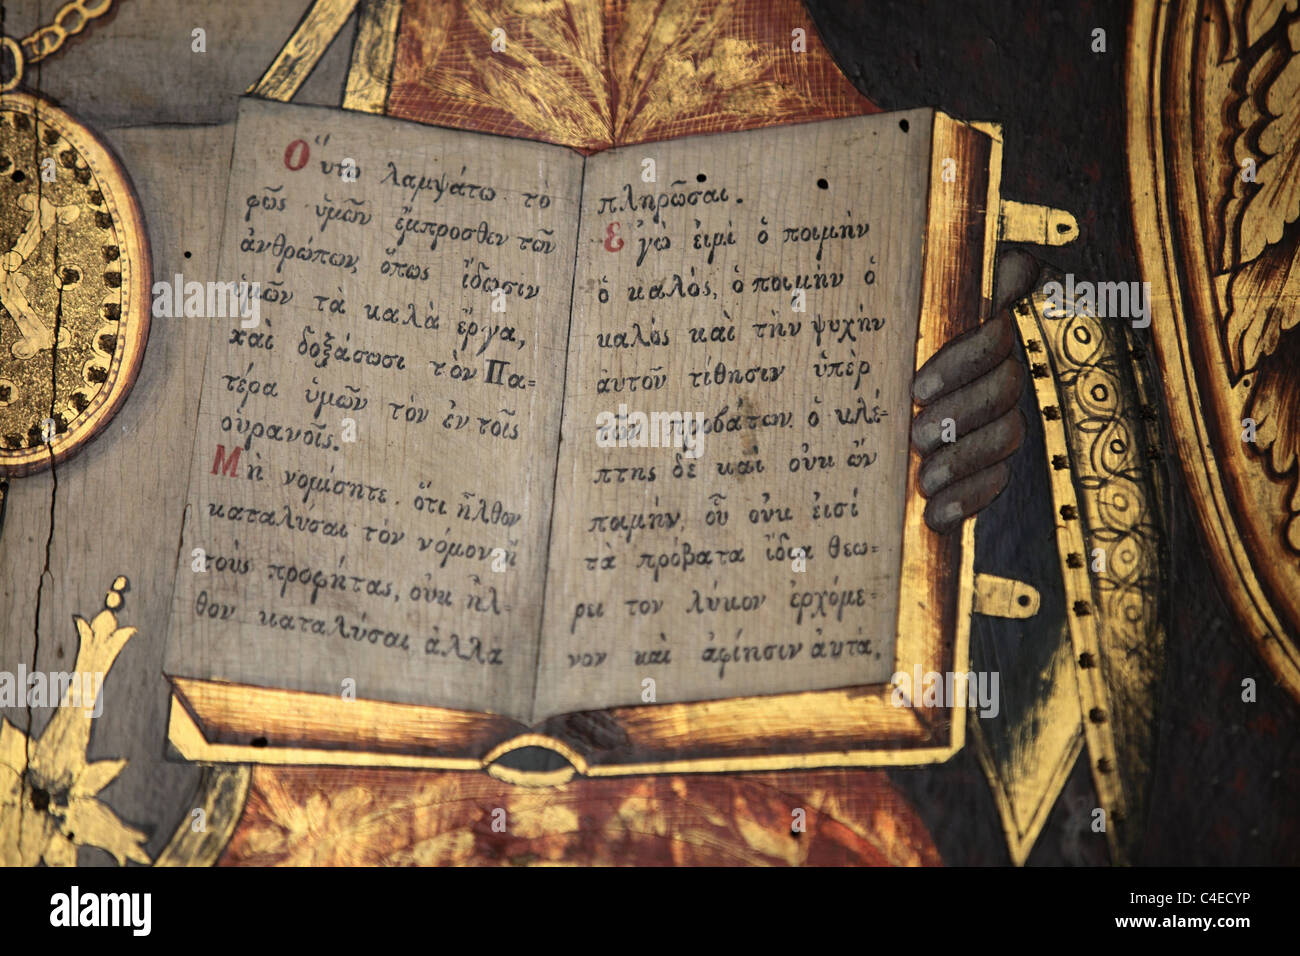 Οὕτω λαμψάτω τὸ
φῶς ὑμῶν ἔμπροσθεν τῶν
ἀνθρώπων, ὅπως ἴδωσιν
ὑμῶν τὰ καλὰ ἔργα,
καὶ δοξάσωσι τὸν Πα=
τέρα ὑμῶν τὸν ἐν τοῖς
οὐρανοῖς.
Μὴ νομίσητε. ὅτι ἦλθον
καταλύσαι τὸν νόμον ἢ
τοὺς προφήτας, οὐκ ἦλ=
θον καταλύσαι ἀλλὰ
πληρῶσαι.
Εγὼ ειμὶ ὁ ποιμὴν
ὁ καλός, ὁ ποιμὴν ὁ
καλός καὶ τὴν ψυχὴν
ἁυτοῦ τίθησιν ὑπὲρ
τῶν προβάτων. ὁ κλέ=
πτης δὲ καὶ οὐκ ὢν
ποιμὴν, οὗ οὐκ ἐισί
τὰ πρόβατα ἴδια θεω=
ρει τον λύκον ἐρχόμε=
νον καὶ ἀφίησιν ἀυτὰ,
alamy
Image ID: C4ECYP
www.alamy.com